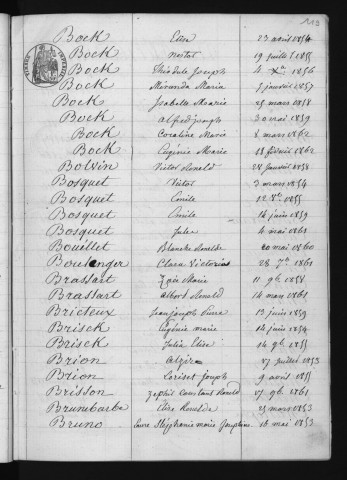 112
Bock Elise 23 avril 1854
Bock nestor 19 juillet 1855
Bock Théodule Joseph 4 Xbre 1856
Bock Miranda Maria 7 janvier 1857
Bock Isabelle Marie 25 mars 1858
Bock Alfred joseph 3 mai 1859
Bock Coraline Marie 8 mars 1862
Bock Eugénie Marie 18 février 1862
Bolvin Victor Renold 28 janvier 1858
Bosquet Victor 3 mars 1854
Bosquet Emile 12 8re 1855
Bosquet Emile 14 juin 1859
Bosquet Jules 4 mai 1861
Bouillet Blanche Renelde 20 mai 1860
Boulanger Clara Victorine 28 7re 1861
Brassart Zoé Marie 11 9bre 1858
Brassart Albert Renold 14 mars 1861
Bricteux Jean joseph Pierre 13 juin 1859
Brisck Eugénie marie 14 juin 1854
Brisck Julie Elise 14 9bre 1855
Brion Alzire 17 juillet 1853
Brion Loriset Joseph 9 avril 1855
Brisson Zephir Constant Renold 17 9bre 1861
Brunebarbe Elise Renelde 23 mars 1853
Bruno Laure Stéphanie marie Josephine 16 mai 1853